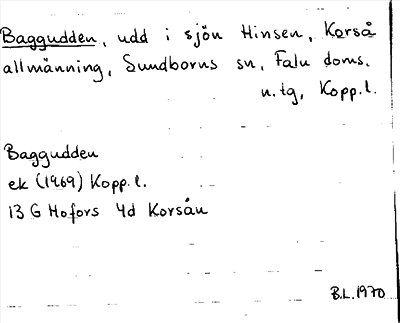 Baggudden, udd i sjön Hinsen, Korså
allmänning, Sundborns sn, Falu doms.
n.tg, Kopp.l.
Baggudden
ek (1969) Kopp.l.
13 G Hofors 4d Korsån
B.L. 1970